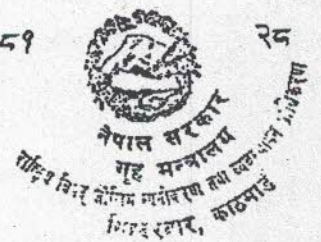 ८१
२८
नेपाल सरकार
गृह मन्त्रालय
राष्ट्रिय विपद् जोखिम न्यूनीकरण तथा व्यवस्थापन प्राधिकरण
सिंहदरबार, काठमाडौं